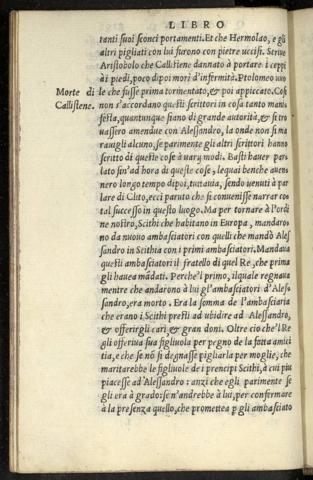 LIBRO
tanti suoi sconci portamenti. Et che Hermolao, e gli
altri pigliati con lui furono con pietre uccisi. Scriue
Aristobolo che Callistene dannato à portare i ceppi
à i piedi, poco dipoi morì d'infermità. Ptolomeo uuo
Morte di
Callistene.
le che fusse prima tormentato, & poi appiccato. Cosi
non s'accordano questi scrittori in cosa tanto mani-
festa, quantunque siano de grande autorità, & si tro
uassero amendue con Alessandro, la onde non fi ma
rauigli alcuno, se parimente gli altri scrittori hanno
scritto di queste cose à uarij modi. Basti hauer par-
lato sin'ad hora di queste cose, lequai benche auen-
nero longo tempo dipoi, tuttauia, sendo uenuti à par
lare di Clito, ecci paruto che si conuenisse narrar co
tal successo in questo luogo. Ma per tornare à l'ordi
ne nostro, Scithi che habitano in Europa, mandaro-
no da nuouo ambasciatori con quelli che mandò Ales
sandro in Scithia con i primi ambasciatori. Mandaua
questi ambasciatori il fratello di quel Re, che prima
gli hauea mãdati. Perche'l primo, ilquale regnaua
mentre che andarono à lui gl'ambasciatori d'Ales-
sandro, era morto. Era la somma de l'ambasciaria
che erano i Scithi presti ad ubidire ad Alessandro,
& offerirgli cari, & gran doni. Oltre cio che'l Re
gli offeriua sua figliuola per pegno de la fatta amici
tia, e che se nõ si degnasse pigliarla per moglie, che
maritarebbe le figliuole de i prencipi Scithi, à cui piu
piacesse ad Alessandro: anzi che egli parimente se
gli era à grado: se n'andrebbe à lui, per confirmare
à la presenza quello, che promettea p gli ambasciato